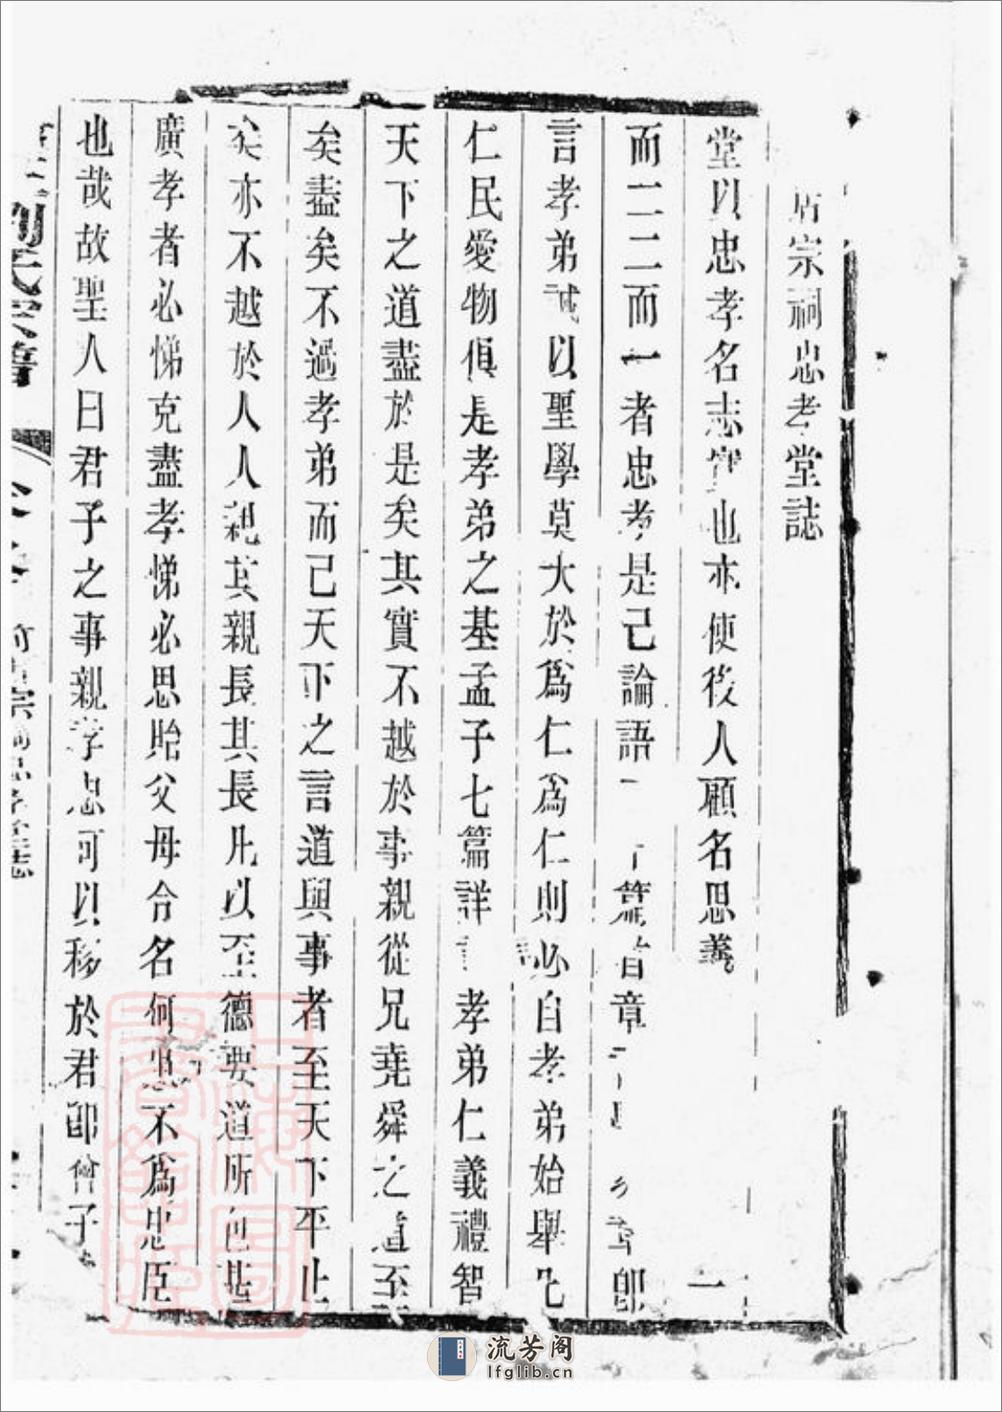 宗祠忠孝堂誌
堂以忠孝名志實也亦使後人顧名思義一
而一二二而一者忠孝是已論語二十篇首章即
言孝弟誠以聖學莫大於爲仁爲仁則必自孝弟始舉凡
仁民愛物俱是孝弟之基孟子七篇詳言孝弟仁義禮智
天下之道盡於是矣其實不越於事親從兄堯舜之道至
矣盡矣不過孝弟而已天下之言道與事者至天下平止
矣亦不越於人人親其親長其長凡以至德要道所包甚
廣孝者必悌克盡孝悌必思貽父母令名何患不爲忠臣
也哉故聖人曰君子之事親孝忠可以移於君即曾子
劉氏宗譜
宗祠忠孝堂誌
上海圖書館藏
流芳阁
lfglib.cn